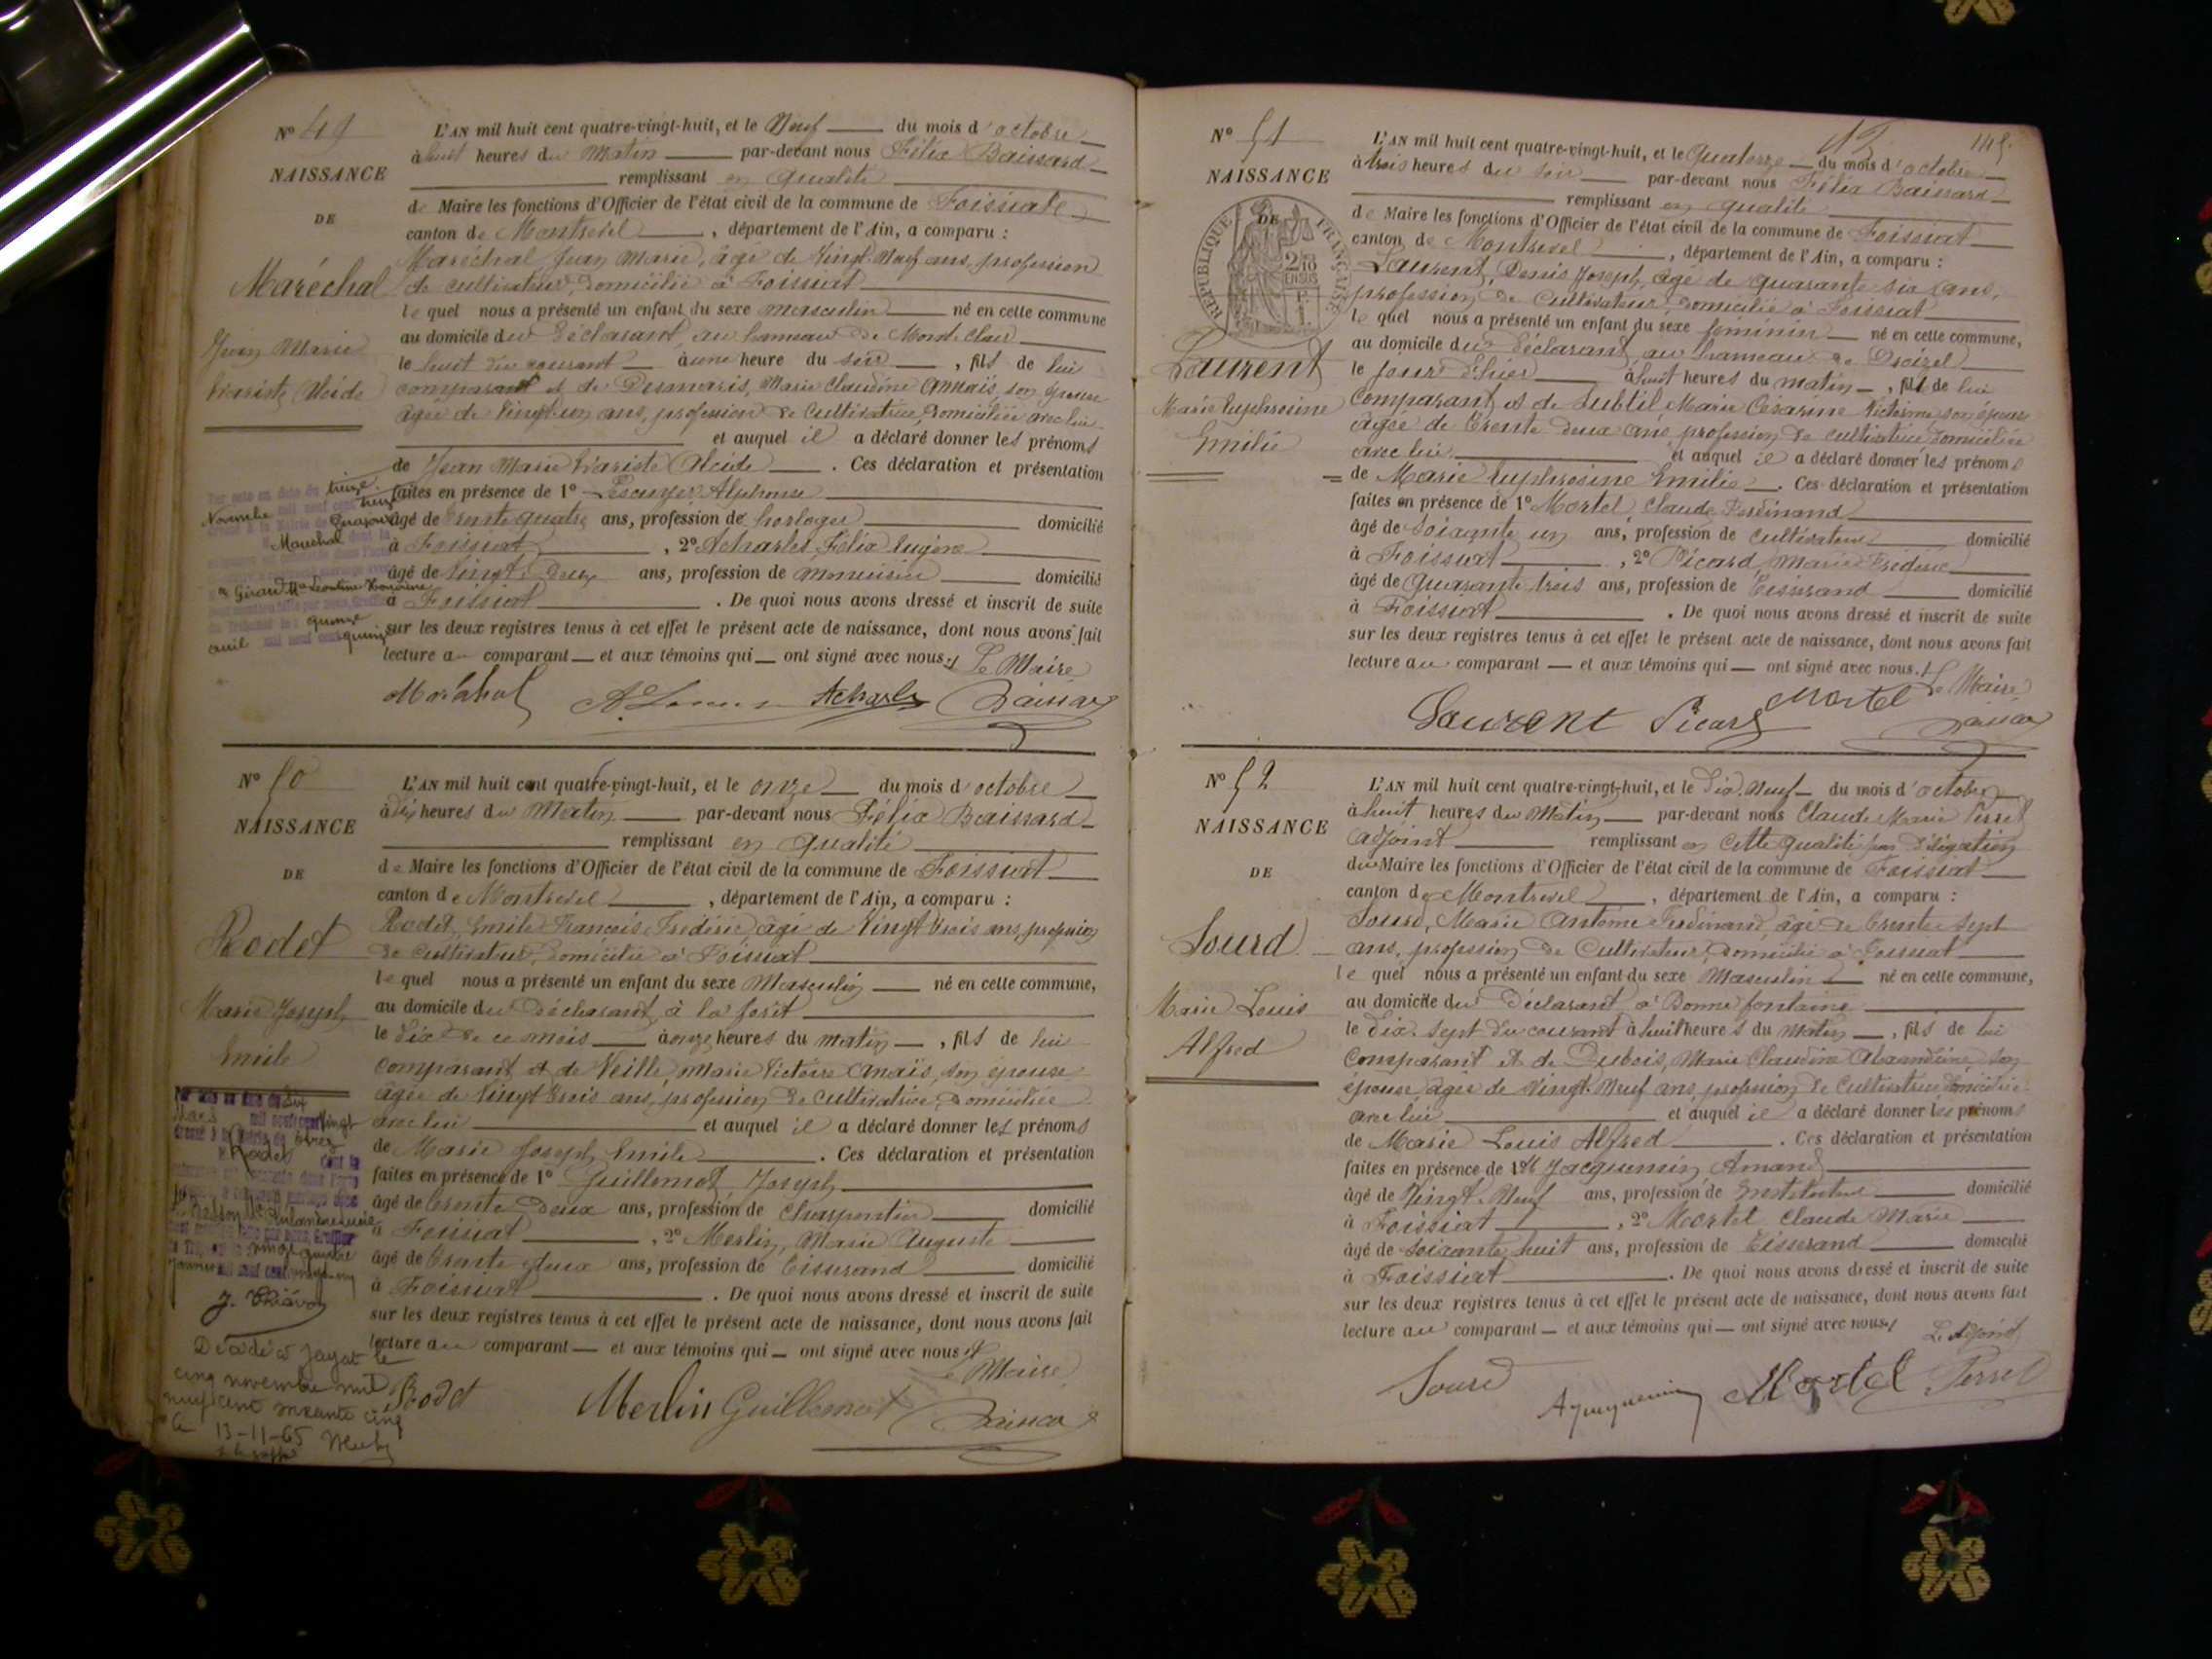 N° 49
NAISSANCE
DE
Maréchal
Jean Marie
Evariste Alcide
L'AN mil huit cent quatre-vingt-huit, et le Neuf du mois d'octobre
à huit heures du Matin par-devant nous Félix Baissard
remplissant en qualité
de Maire les fonctions d'Officier de l'état civil de la commune de Foissiat
canton de Montrevel, département de l'Ain, a comparu :
Maréchal Jean Marie, âgé de Vingt-Neuf ans, profession
de cultivateur, domicilié à Foissiat
le quel nous a présenté un enfant du sexe masculin né en cette commune
au domicile du déclarant, au hameau de Mont-Clair
le huit du courant à une heure du soir, fils de lui
comparant et de Desmaris, Marie Claudine Anaïs, son épouse
âgée de Vingt-un ans, profession de Cultivatrice, domiciliée avec lui
et auquel il a déclaré donner les prénoms
de Jean Marie Evariste Alcide. Ces déclaration et présentation
faites en présence de 1° Lescuyer Alphonse
âgé de trente quatre ans, profession de horloger domicilié
à Foissiat, 2° Acharles, Félix Eugène
âgé de Vingt-Deux ans, profession de Menuisier domicilié
à Foissiat. De quoi nous avons dressé et inscrit de suite
sur les deux registres tenus à cet effet le présent acte de naissance, dont nous avons fait
lecture au comparant et aux témoins qui ont signé avec nous. Le Maire
treize
Novembre mil neuf cent treize
Maréchal
Girard Mie Léontine
quinze
avril mil neuf cent quinze
Maréchal Acharles Baissard
N° 50
NAISSANCE
DE
Rodet
Marie Joseph
Emile
L'AN mil huit cent quatre-vingt-huit, et le onze du mois d'octobre
à dix heures du Matin par-devant nous Félix Baissard
remplissant en qualité
de Maire les fonctions d'Officier de l'état civil de la commune de Foissiat
canton de Montrevel, département de l'Ain, a comparu :
Rodet, Emile François Frédéric âgé de Vingt trois ans, profession
de cultivateur, domicilié à Foissiat
le quel nous a présenté un enfant du sexe Masculin né en cette commune,
au domicile du déclarant, à la forêt
le Dix de ce mois à onze heures du matin, fils de lui
comparant et de Veille, Marie Victoire Anaïs, son épouse
âgée de Vingt trois ans, profession de cultivatrice, domiciliée
avec lui et auquel il a déclaré donner les prénoms
de Marie Joseph Emile. Ces déclaration et présentation
faites en présence de 1° Guillemot Joseph
âgé de trente Deux ans, profession de Charpentier domicilié
à Foissiat, 2° Merlin, Marie Auguste
âgé de trente deux ans, profession de tisserand domicilié
à Foissiat. De quoi nous avons dressé et inscrit de suite
sur les deux registres tenus à cet effet le présent acte de naissance, dont nous avons fait
lecture au comparant et aux témoins qui ont signé avec nous. Le Maire
Rodet
Décédé à Jayat le
cinq novembre mil
neuf cent soixante cinq
le 13-11-65
Rodet Merlin Guillemot Baissard
145
N° 51
NAISSANCE
DE
REPUBLIQUE FRANÇAISE
Laurent
Marie Euphrosine
Emilie
L'AN mil huit cent quatre-vingt-huit, et le Quatorze du mois d'octobre
à trois heures du soir par-devant nous Félix Baissard
remplissant en qualité
de Maire les fonctions d'Officier de l'état civil de la commune de Foissiat
canton de Montrevel, département de l'Ain, a comparu :
Laurent, Denis Joseph, âgé de quarante six ans,
profession de Cultivateur, domicilié à Foissiat
le quel nous a présenté un enfant du sexe féminin né en cette commune,
au domicile du déclarant, au hameau de
le jour d'hier à huit heures du matin, fille de lui
Comparant et de Subtil Marie Césarine Victorine, son épouse
âgée de trente deux ans, profession de cultivatrice domiciliée
avec lui et auquel il a déclaré donner les prénoms
de Marie Euphrosine Emilie. Ces déclaration et présentation
faites en présence de 1° Mortel Claude Ferdinand
âgé de soixante un ans, profession de cultivateur domicilié
à Foissiat, 2° Picard, Marie Frédéric
âgé de Quarante trois ans, profession de tisserand domicilié
à Foissiat. De quoi nous avons dressé et inscrit de suite
sur les deux registres tenus à cet effet le présent acte de naissance, dont nous avons fait
lecture au comparant et aux témoins qui ont signé avec nous. Le Maire
Laurent Picard Mortel Baissard
N° 52
NAISSANCE
DE
Sourd
Marie Louis
Alfred
L'AN mil huit cent quatre-vingt-huit, et le Dix-Neuf du mois d'octobre
à huit heures du Matin par-devant nous Claude Marie Perret
adjoint remplissant en cette qualité par délégation
du Maire les fonctions d'Officier de l'état civil de la commune de Foissiat
canton de Montrevel, département de l'Ain, a comparu :
Sourd, Marie Antoine Ferdinand, âgé de trente sept
ans, profession de Cultivateur, domicilié à Foissiat
le quel nous a présenté un enfant du sexe Masculin né en cette commune,
au domicile du Déclarant à Bonne fontaine
le Dix-sept du courant à huit heures du matin, fils de lui
Comparant et de Dubois, Marie Claudine Alexandrine, son
épouse, âgée de Vingt-Neuf ans, profession de Cultivatrice domiciliée
avec lui et auquel il a déclaré donner les prénoms
de Marie Louis Alfred. Ces déclaration et présentation
faites en présence de 1° M Jacquemin Amand
âgé de Vingt-Neuf ans, profession de Instituteur domicilié
à Foissiat, 2° Mortel Claude Marie
âgé de soixante huit ans, profession de tisserand domicilié
à Foissiat. De quoi nous avons dressé et inscrit de suite
sur les deux registres tenus à cet effet le présent acte de naissance, dont nous avons fait
lecture au comparant et aux témoins qui ont signé avec nous. L'Adjoint
Sourd A Jacquemin Mortel Perret